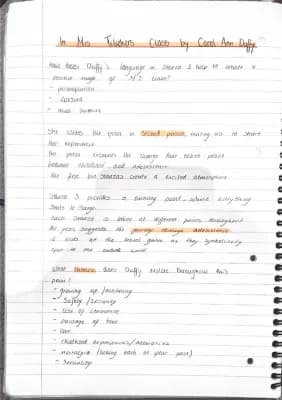 In Mrs Tilschers Class by Carol Ann Duffy
How does Duffy's language in stanza 1 help to create a
positive image of M.T class?
- personification
- caesura
- minor sentence
She writes the poem in second person, inviting us to share
her experience.
The poem examines the change that takes place
between childhood and adolescence.
The first two stanzas create a excited atmosphere
Stanza 3 provides a turning point where everything
starts to change.
each stanza is taken at different points throughout
the year, suggests the journey through adolescence
it ends at the school gates as they symbolically
open to the outside world.
What themes does Duffy explore throughout this
poem?
- growing up / maturing
- Safety / security
- Loss of innocence
- passage of time
- love
- childhood experiences/memories
- nostalgia (looking back at your past)
- Sexuality